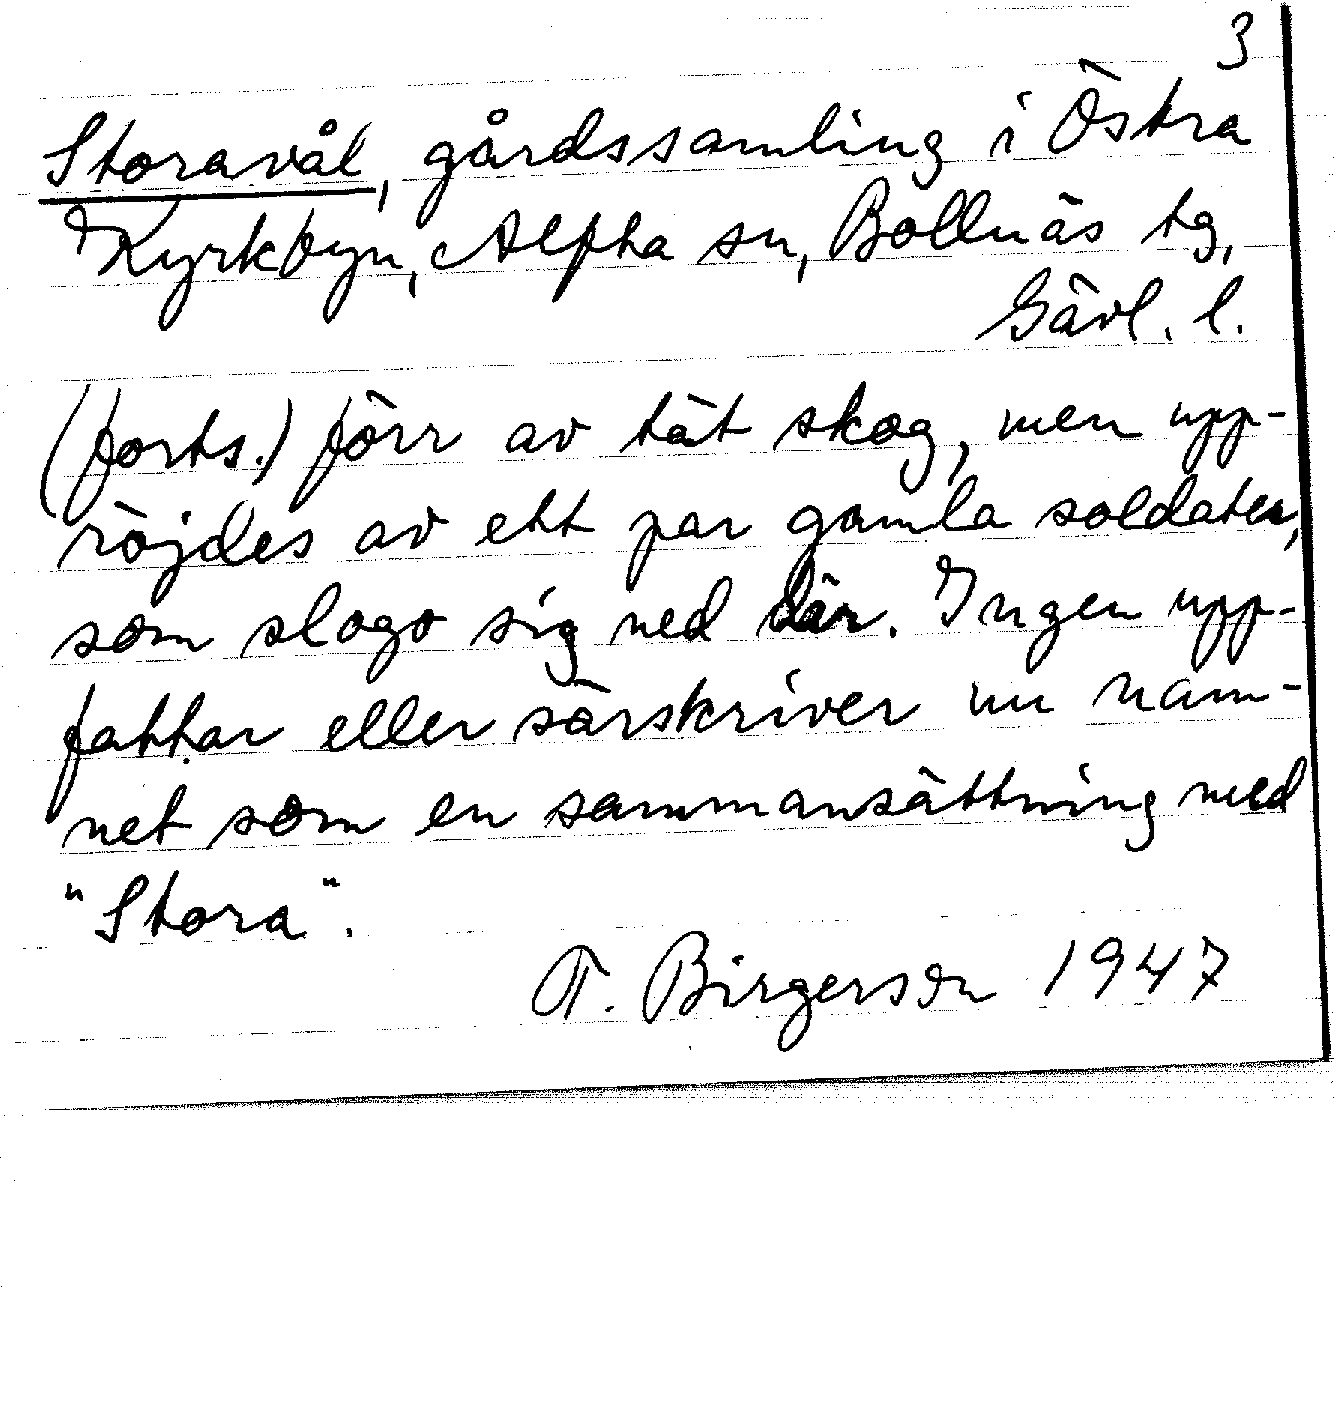 3
Storavål, gårdssamling i Östra
Kyrkbyn, Alfta sn, Bollnäs tg,
Gävl. l.
(forts.) förr av tät skog, men upp-
röjdes av ett par gamla soldater,
som slogo sig ned där. Ingen upp-
fattar eller särskriver nu nam-
net som en sammansättning med
"Stora".
T. Birgersson 1947